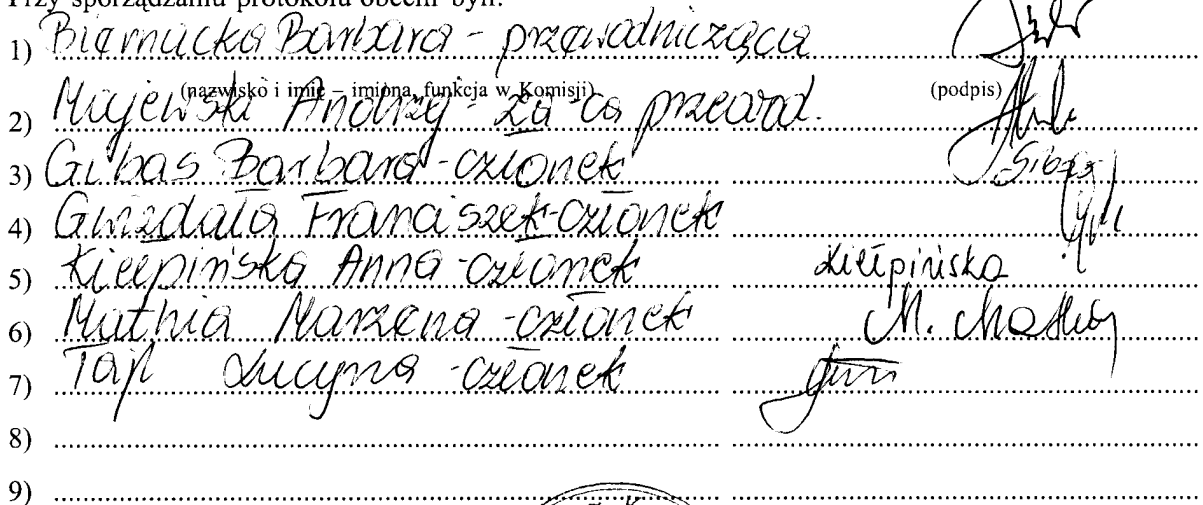 Przy sporządzaniu protokołu obecni byli:
1) Biernacka Barbara - przewodnicząca
(nazwisko i imię – imiona, funkcja w Komisji) (podpis)
2) Majewski Andrzej - za-ca przewod.
3) Gibas Barbara - członek Gibas
4) Gwizdała Franciszek - członek
5) Kiełpińska Anna - członek Kiełpińska
6) Mathia Marzena - członek M. Mathia
7) Tajl Lucyna - członek
8)
9)